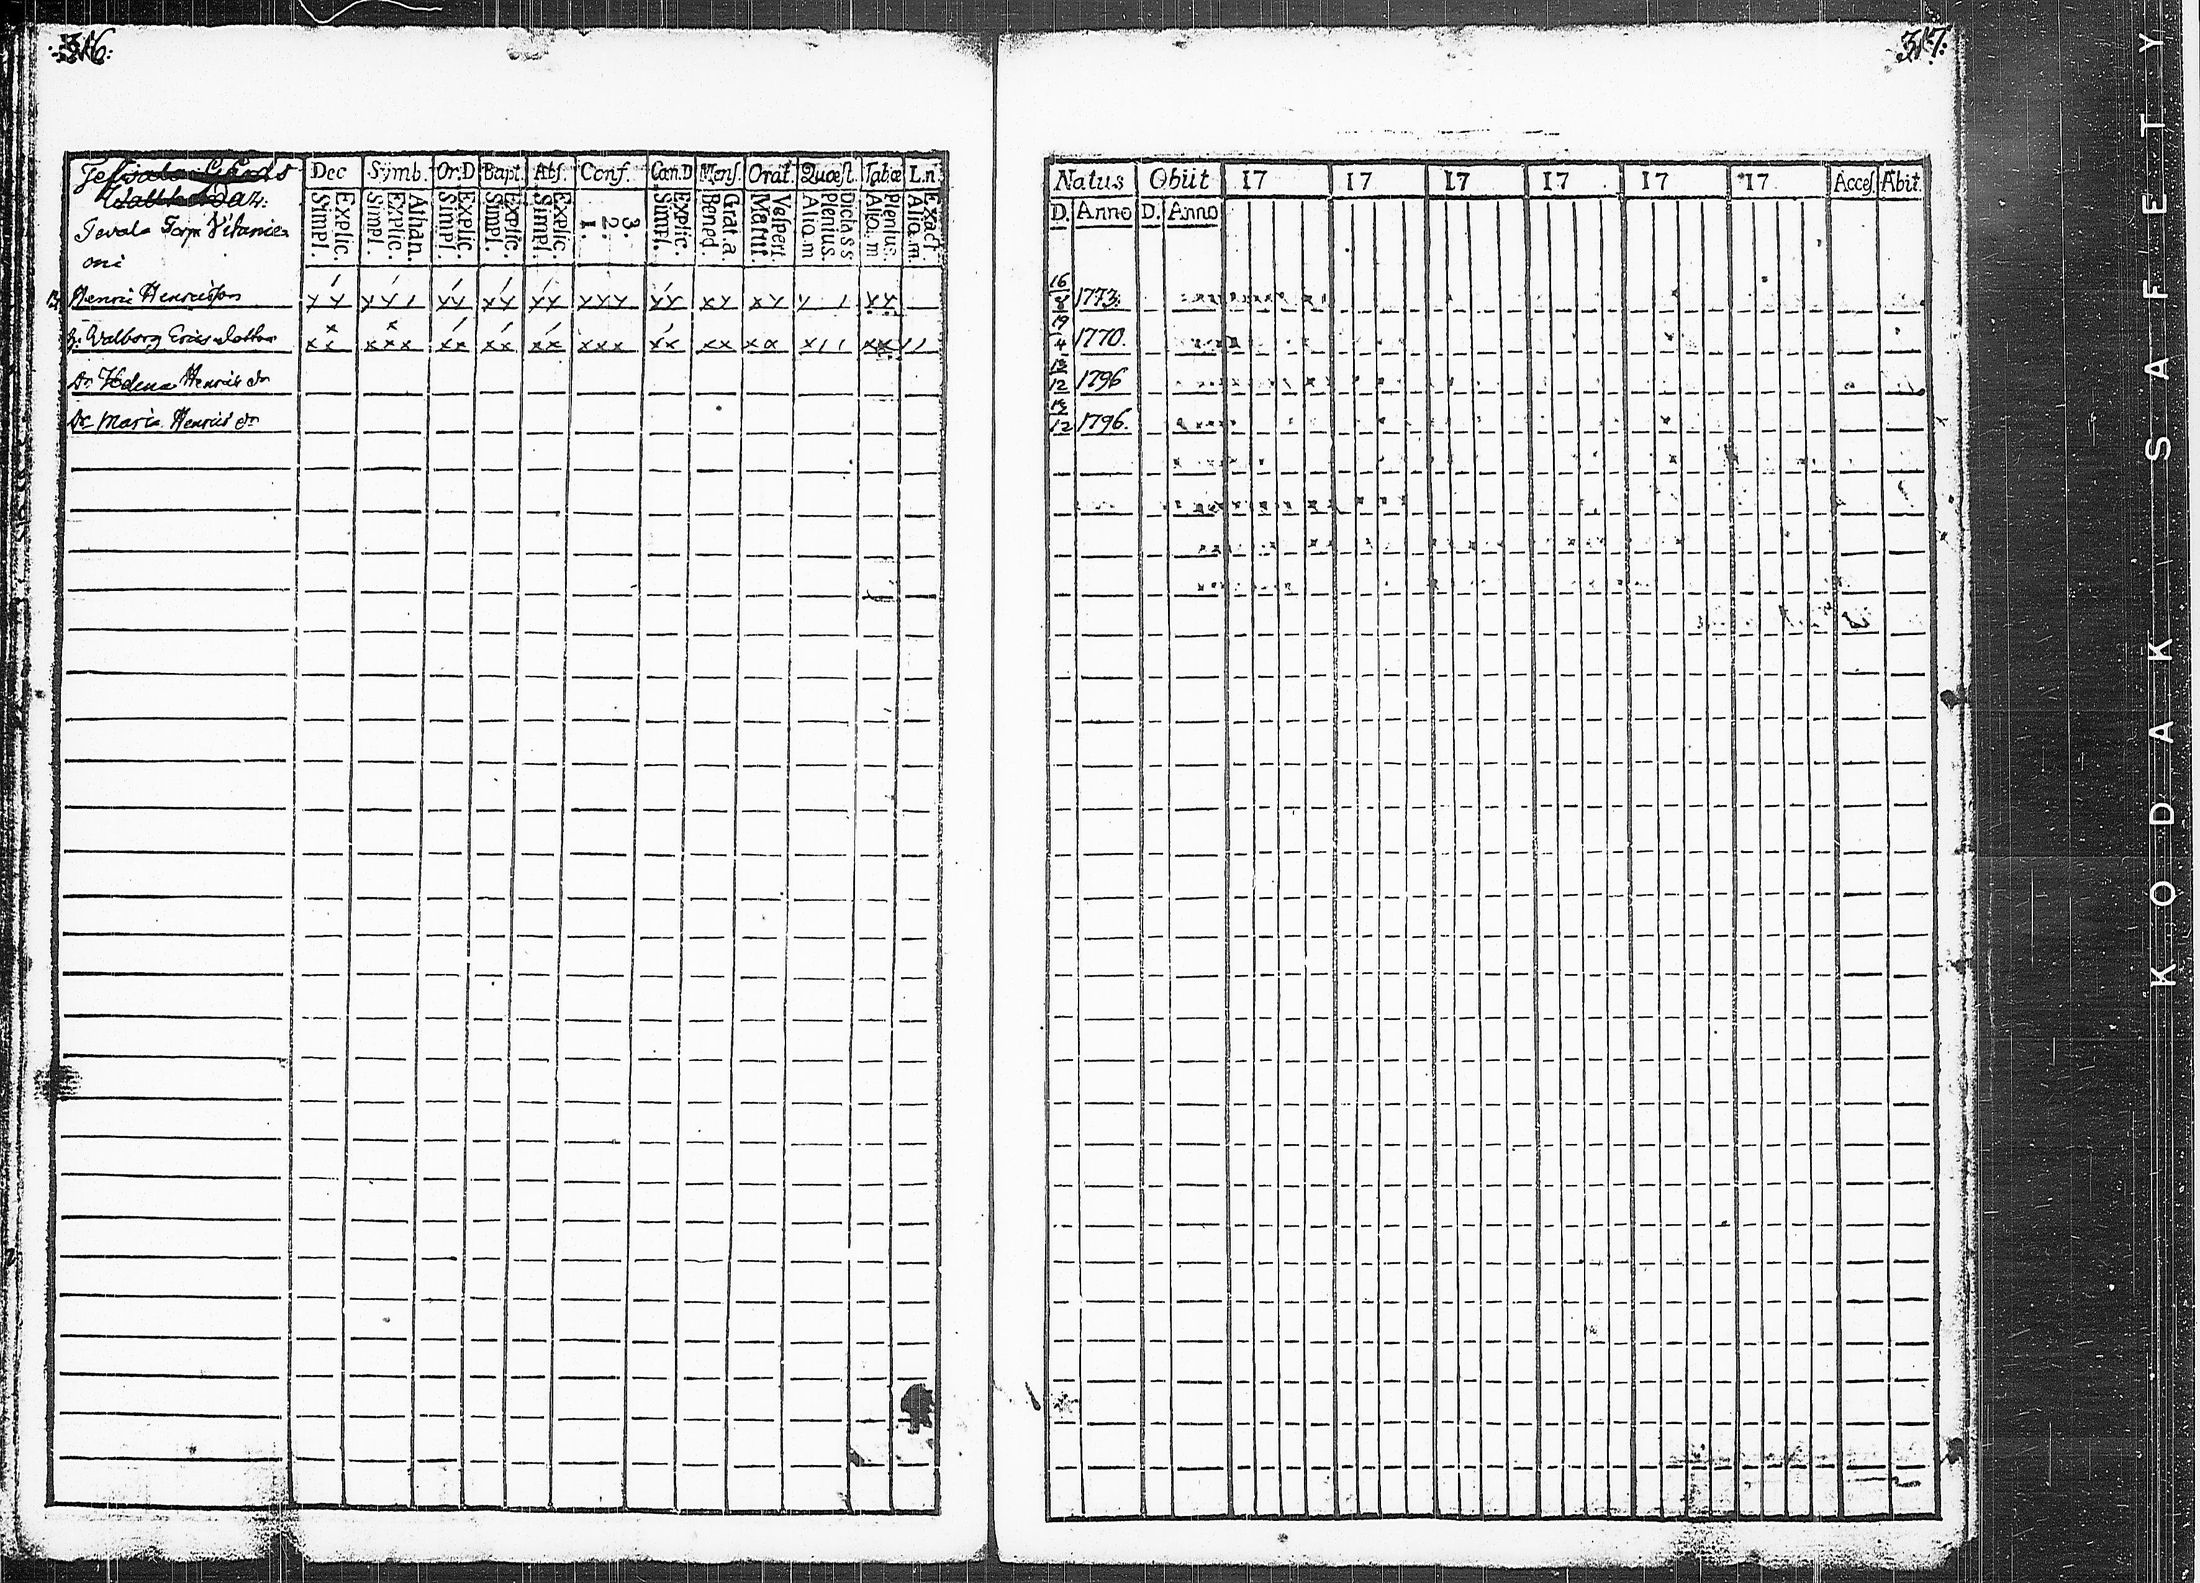 316:
317:
Dec Symb. Or.D Bapt. Abs. Conf. Cœn.D Mens. Orat. Quæst. Tabæ L.n.
Explic. Simpl.
Athan. Explic. Simpl.
Explic. Simpl.
Explic. Simpl.
Explic. Simpl.
3. 2. 1.
Explic. Simpl.
Grat.a Bened.
Vespert. Matut.
Dicta ss Plenius Aliq.m
Plenius. Aliq.m
Exact. Aliq.m
Jevala Torp
oni
Henric Henricsson
h. Walborg Ericsdotter
Dr Helena Henrics dr
Dr Maria Henrics dr
Natus Obiit 17 17 17 17 17 17 Acces. Abit.
D. Anno D. Anno
16/8 1773.
19/4 1770.
13/12 1796
13/12 1796.
KODAK SAFETY